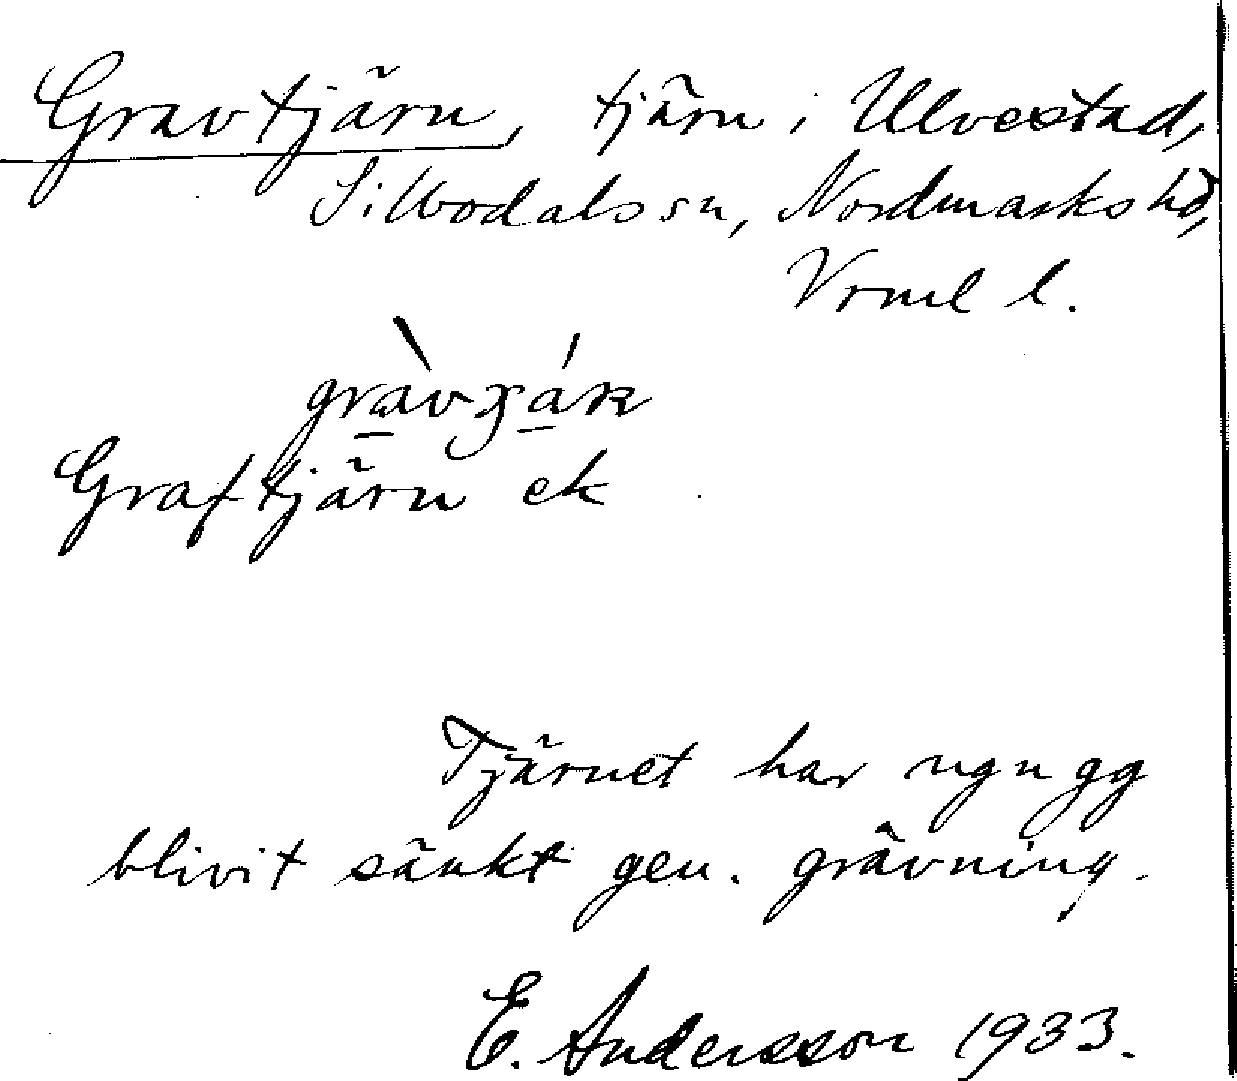 Gravtjärn, tjärn i Ulvestad,
Silbodals sn, Nordmarks hd,
Vrml l.
Graftjärn ek
Tjärnet har ngn gg
blivit sänkt gen. grävning.
E. Andersson 1933.